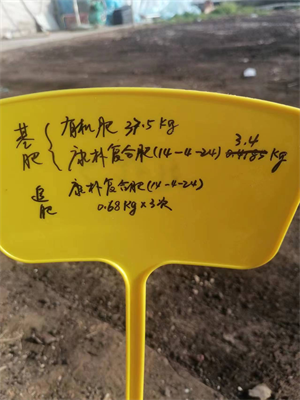 基肥 { 有机肥 37.5kg
3.4
康朴复合肥(14-4-24) 0.4785kg
追肥 康朴复合肥(14-4-24)
0.68kg×3次